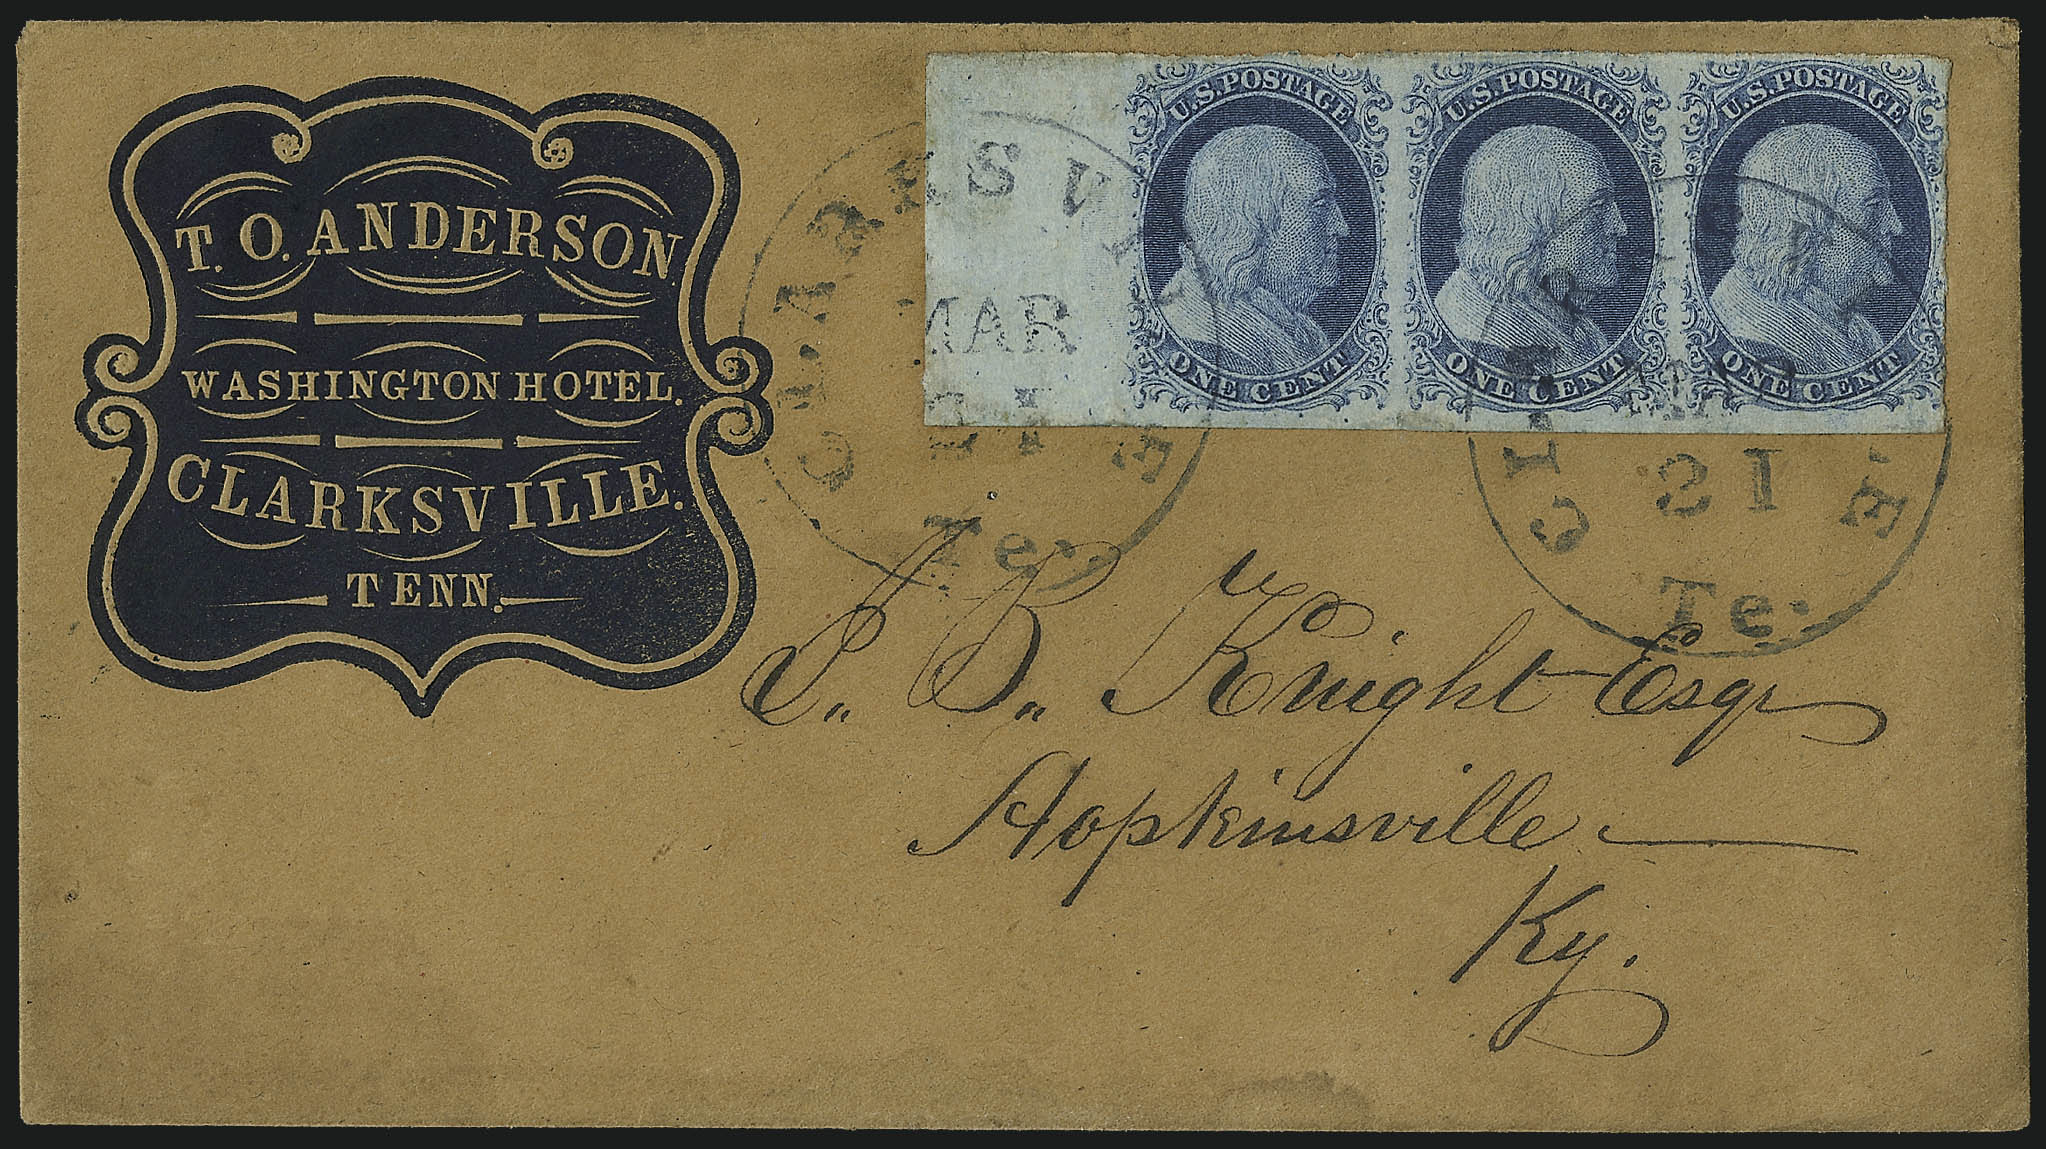 T. O. ANDERSON
WASHINGTON HOTEL.
CLARKSVILLE.
TENN.
U.S. POSTAGE
ONE CENT
U.S. POSTAGE
ONE CENT
U.S. POSTAGE
ONE CENT
CLARKSVILLE
MAR
21
Te.
CLARKSVILLE
MAR
21
Te.
J. B. Knight Esqr
Hopkinsville
Ky.